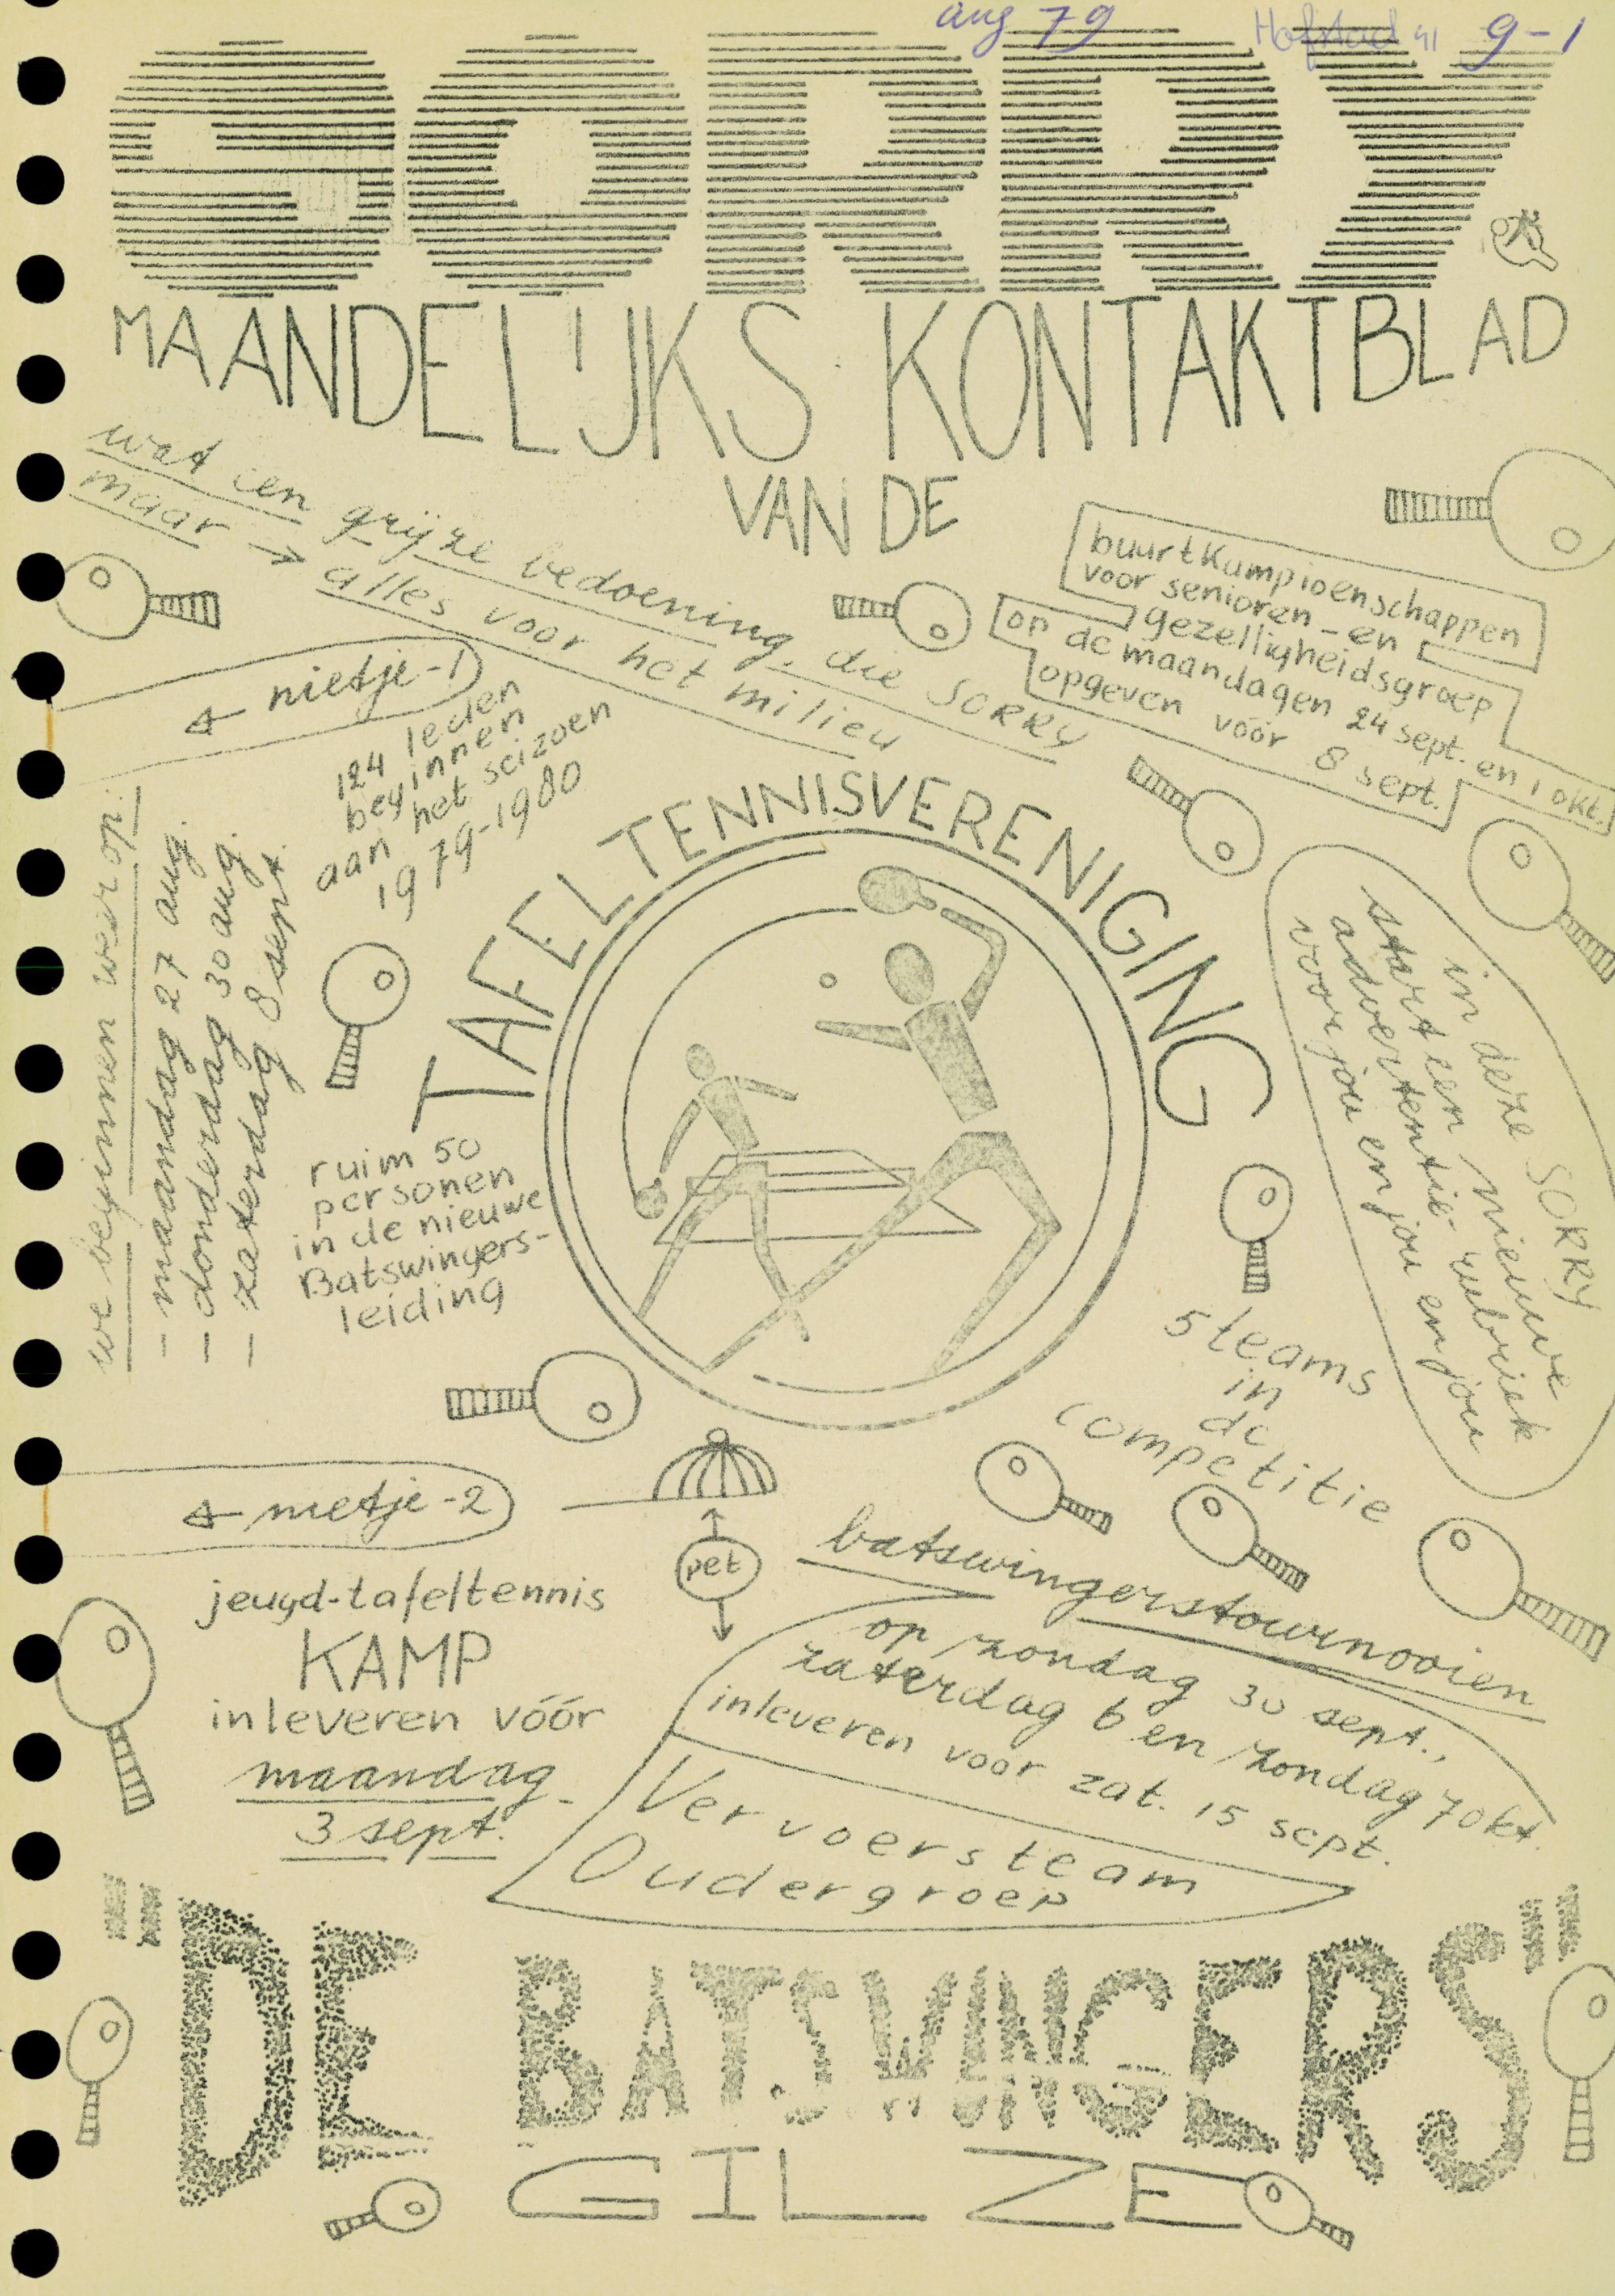 aug 79
Hofstad 41
9-1
SORRY
MAANDELIJKS KONTAKTBLAD
VAN DE
wat een grijze bedoening, die SORRY
maar → alles voor het milieu
buurtkampioenschappen
voor senioren - en
gezelligheidsgroep
op de maandagen 24 sept. en 1 okt.
opgeven vóór 8 sept.
nietje-1
124 leden
beginnen
aan het seizoen
1979-1980
we beginnen weer op:
- maandag 27 aug.
- donderdag 30 aug.
- zaterdag 8 sept.
TAFELTENNISVERENIGING
in deze SORRY
start een nieuwe
advertentie-rubriek
voor jou en jou en jou
ruim 50
personen
in de nieuwe
Batswingers-
leiding
5 teams
in
de
competitie
nietje-2
pet
jeugd-tafeltennis
KAMP
inleveren vóór
maandag
3 sept.
batswingerstournooien
op zondag 30 sept.,
zaterdag 6 en zondag 7 okt.
inleveren voor zat. 15 sept.
Vervoersteam
Oudergroep
"DE BATSWINGERS"
GILZE